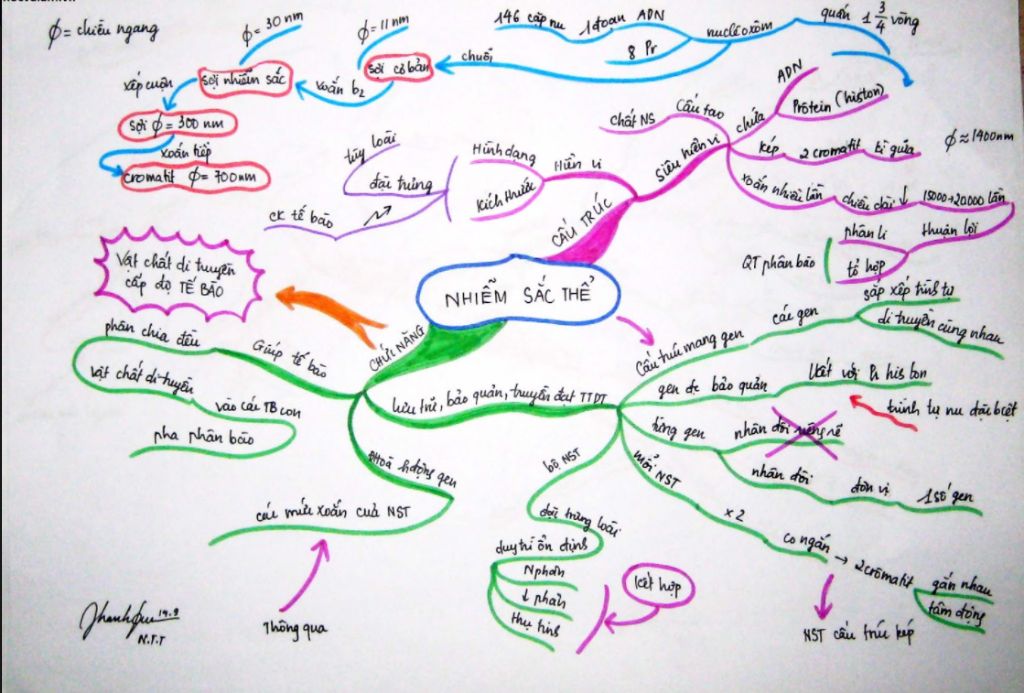 ϕ = chiều ngang
ϕ = 30 nm
ϕ = 11 nm
146 cặp nu
1 đoạn ADN
8 Pr
nuclêôxôm
quấn 1 3/4 vòng
chuỗi
sợi cơ bản
xoắn b2
sợi nhiễm sắc
xếp cuộn
sợi ϕ = 300 nm
xoắn tiếp
cromatit ϕ = 700nm
NHIỄM SẮC THỂ
CẤU TRÚC
Hiển vi
Hình dạng
Kích thước
tùy loài
đặc trưng
CK tế bào
Siêu hiển vi
Cấu tạo
chất NS
chứa
ADN
Prôtêin (histon)
kép
2 cromatit
ϕ ≈ 1400nm
xoắn nhiều lần
chiều dài ↓
15000÷20000 lần
thuận lợi
phân li
tổ hợp
QT phân bào
CHỨC NĂNG
Vật chất di truyền
cấp độ TẾ BÀO
Giúp tế bào
phân chia đều
vật chất di truyền
vào các TB con
pha phân bào
lưu trữ, bảo quản, truyền đạt TTDT
Cấu trúc mang gen
các gen
sắp xếp trình tự
di truyền cùng nhau
gen đc bảo quản
lkết với Pr histon
trình tự nu đặc biệt
từng gen
nhân đôi riêng rẽ
nhân đôi
đơn vị
1 số gen
mỗi NST
x 2
co ngắn
→ 2 crômatit
gắn nhau
tâm động
NST cấu trúc kép
bộ NST
đặc trưng loài
duy trì ổn định
Nphân
↓ phân
thụ tinh
kết hợp
đhoà hđộng gen
các mức xoắn của NST
Thông qua
N.T.T